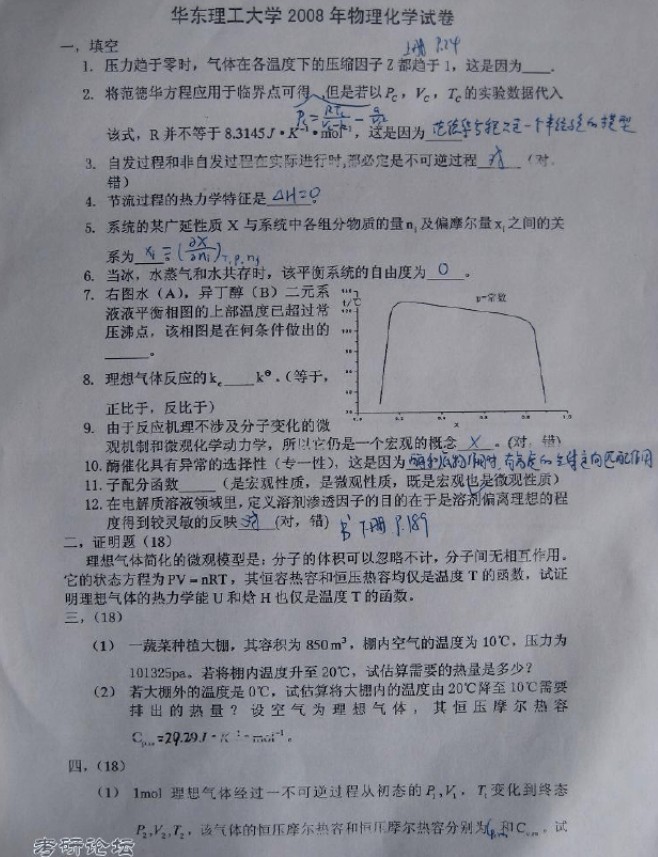 华东理工大学 2008 年物理化学试卷
一，填空
上册 P.24
1. 压力趋于零时，气体在各温度下的压缩因子 Z 都趋于 1，这是因为____.
2. 将范德华方程应用于临界点可得，但是若以 Pc，Vc，Tc 的实验数据代入
该式，R 并不等于 8.3145J·K⁻¹·mol⁻¹，这是因为 范德华方程只是一个半经验的模型
3. 自发过程和非自发过程在实际进行时,都必定是不可逆过程 对 （对，
错）
4. 节流过程的热力学特征是 ΔH=0
5. 系统的某广延性质 X 与系统中各组分物质的量 nᵢ 及偏摩尔量 xᵢ 之间的关
系为 xᵢ=(∂X/∂nᵢ)T,P,nj
6. 当冰，水蒸气和水共存时，该平衡系统的自由度为 0 。
7. 右图水（A），异丁醇（B）二元系
液液平衡相图的上部温度已超过常
压沸点，该相图是在何条件做出的
____。
t/℃
p=常数
x
8. 理想气体反应的 kc____k⊖.（等于，
正比于，反比于）
9. 由于反应机理不涉及分子变化的微
观机制和微观化学动力学，所以它仍是一个宏观的概念 × 。(对，错)
10. 酶催化具有异常的选择性（专一性），这是因为
11. 子配分函数____（是宏观性质，是微观性质，既是宏观也是微观性质）
12. 在电解质溶液领域里，定义溶剂渗透因子的目的在于是溶剂偏离理想的程
度得到较灵敏的反映 对 (对，错) 书 下册 P.189
二，证明题（18）
理想气体简化的微观模型是：分子的体积可以忽略不计，分子间无相互作用。
它的状态方程为 PV＝nRT，其恒容热容和恒压热容均仅是温度 T 的函数，试证
明理想气体的热力学能 U 和焓 H 也仅是温度 T 的函数。
三，(18)
(1) 一蔬菜种植大棚，其容积为 850m³，棚内空气的温度为 10℃，压力为
101325pa。若将棚内温度升至 20℃，试估算需要的热量是多少？
(2) 若大棚外的温度是 0℃，试估算将大棚内的温度由 20℃降至 10℃需要
排出的热量？设空气为理想气体，其恒压摩尔热容
Cp,m=29.29J·K⁻¹·mol⁻¹。
四，(18)
(1) 1mol 理想气体经过一不可逆过程从初态的 P₁,V₁，T₁ 变化到终态
P₂,V₂,T₂，该气体的恒压摩尔热容和恒压摩尔热容分别为Cp,m和 Cv,m，试
考研论坛